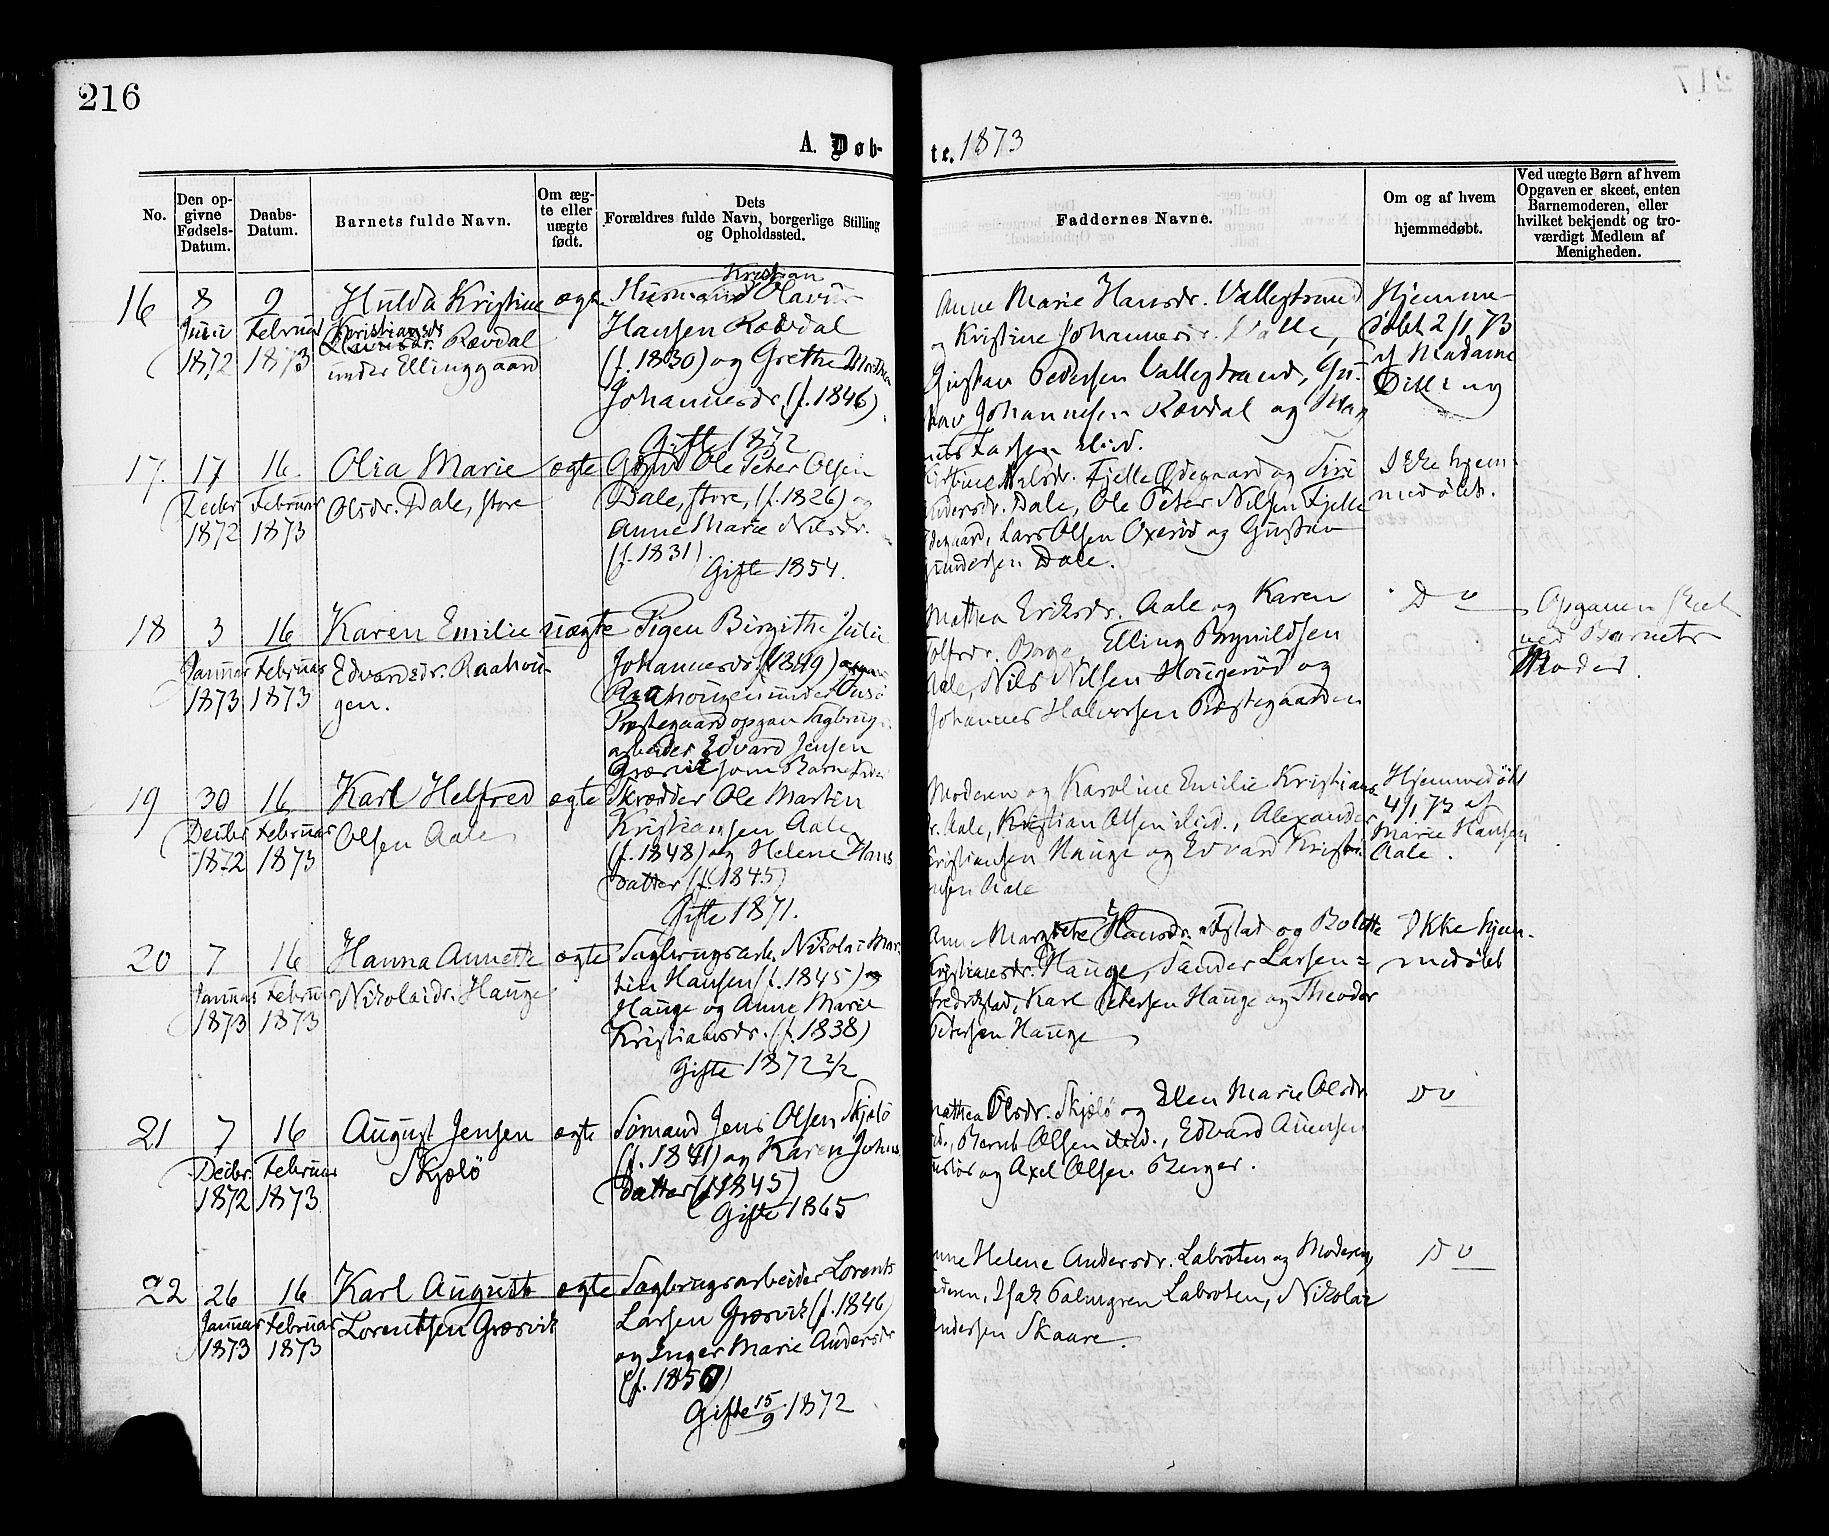 216
217
A. Døb-
te. 1873
No.
Den op-
givne
Fødsels-
Datum.
Daabs-
Datum.
Barnets fulde Navn.
Om æg-
te eller
uægte
født.
Dets
Forældres fulde Navn, borgerlige Stilling
og Opholdssted.
Faddernes Navne.
Om og af hvem
hjemmedøbt.
Ved uægte Børn af hvem
Opgaven er skeet, enten
Barnemoderen, eller
hvilket bekjendt og tro-
værdigt Medlem af
Menigheden.
16
8
Juni
1872
9
Februar
1873
Hulda Kristine
Kristiansdr.
Rævdal
under Ellinggaard
ægte
Kristian
Husmand Olavus
Hansen Rævdal
(f. 1830) og Grethe Mathea
Johannesdr. (f. 1846)
Gifte 1872
Anne Marie Hansdr. Vallestrand
og Kristine Johannesdr. Valle,
Gustav Pedersen Vallestrand, Gu-
stav Johannesen Rævdal og Mag
nus Larsen ibid.
Hjemme-
døbt 2/1 73
af Madame
Dilling
17.
17
Decbr
1872
16
Februar
1873
Olia Marie
Olsdr. Dale, store
ægte
Gbr. Ole Peter Olsen
Dale, store, (f. 1826) og
Anne Marie Nilsdr.
(f. 1831)
Gifte 1854.
Nilsdr. Fjelle Ødegaard og Siri
Andersdr. Dale, Ole Peter Nilsen Fjelle
Ødegaard, Lars Olsen Oxerød og Gustav
Gundersen Dale.
Ikke hjem-
medøbt.
18
3
Januar
1873
16
Februar
1873
Karen Emilie
Edvardsdr. Raahou-
gen.
uægte
Pigen Birgithe Julie
Johannesdr. (f. 1849)
Raahougen under Onsø
Præstegaard opgav Sagbrugs
arbeider Edvard Jensen
Græsvik som Barnefader
Mathea Eriksdr. Aale og Karen
Rolfsdr. Borge, Elling Brynildsen
Aale, Nils Nilsen Hougerød og
Johannes Halvorsen Præstegaarden
Do
Opgaven skeet
ved Barnets
Moder.
19
30
Decbr
1872
16
Februar
1873
Karl Helfred
Olsen Aale
ægte
Skrædder Ole Martin
Kristiansen Aale
(f. 1848) og Helene Hans
datter (f. 1845)
Gifte 1871.
Moderen og Karoline Emilie Kristians
dr. Aale, Kristian Olsen ibid., Alexander
Kristiansen Hauge og Edvard Kristi-
ansen Aale
Hjemmedøbt
4/1 73 af
Marie Hansen
Aale.
20
7
Januar
1873
16
Februar
1873
Hanna Annette
Nikolaidr. Hauge
ægte
Sagbrugsarb. Nikolai Mar-
tin Hansen (f. 1845) og
Hauge og Anne Marie
Kristiansdr. (f. 1838)
Gifte 1872 2/2
Anne Margrete Hansdr. Østad og Bolette
Kristiansdr. Hauge, Sander Larsen
Fredrikstad, Karl Petersen Hauge og Theodor
Petersen Hauge
Ikke hjem-
medøbt
21
7
Decbr.
1872
16
Februar
1873
August Jensen
Skjælø
ægte
Sømand Jens Olsen Skjelø
(f. 1841) og Karen Johns
datter (f. 1845)
Gifte 1865
Mathea Olsdr. Skjælø og Elen Marie Olsdr.
ibid., Bernt Olsen ibid., Edvard Auensen
og Axel Olsen Berger.
Do
22
26
Januar
1873
16
Februar
1873
Karl August
Lorentsen Græsvik
ægte
Sagbrugsarbeider Lorents
Larsen Græsvik (f. 1846)
og Inger Marie Andersdr
(f. 1850)
Gifte 15/9 1872
Anne Helene Andersdr. Labroten og Moderen,
Faderen, Isak Palmgren Labroten, Nikolai
Andersen Skaare.
Do